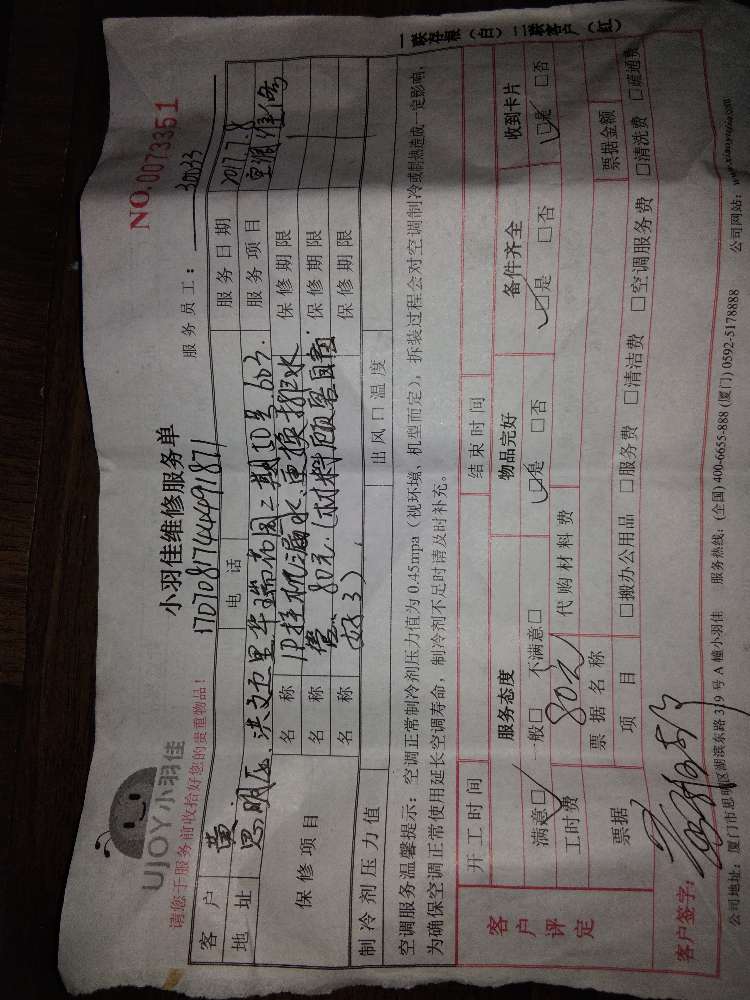 UJOY小羽佳
小羽佳维修服务单
NO.0073351
请您于服务前收拾好您的贵重物品！
1707081744491871
服务员工：
客户 黄 电话 服务日期 2017.7.8
地址 思明区 洪文五里华瑞花园二期10号603. 服务项目 空调维修
保修项目 名称 1P挂机漏水，更换排水 保修期限
名称 管 80元（材料顾客自备 保修期限
名称 好了） 保修期限
制冷剂压力值 出风口温度
空调服务温馨提示：空调正常制冷剂压力值为0.45mpa（视环境、机型而定），拆装过程会对空调制冷或制热造成一定影响，
为确保空调正常使用延长空调寿命，制冷剂不足时请及时补充。
开工时间 结束时间
客户评定 服务态度 物品完好 备件齐全 收到卡片
满意□ 一般□ 不满意□ □是 □否 □是 □否 □是 □否
工时费 80元 代购材料费
票据 票据名称 票据金额
项目 □搬办公用品 □服务费 □清洁费 □空调服务费 □清洗费 □疏通费
客户签字：
公司地址：厦门市思明区湖滨东路319号A幢小羽佳 服务热线：(全国) 400-6655-888 (厦门) 0592-5178888 公司网站：www.xiaoyujia.com
一联存根（白） 二联客户（红）